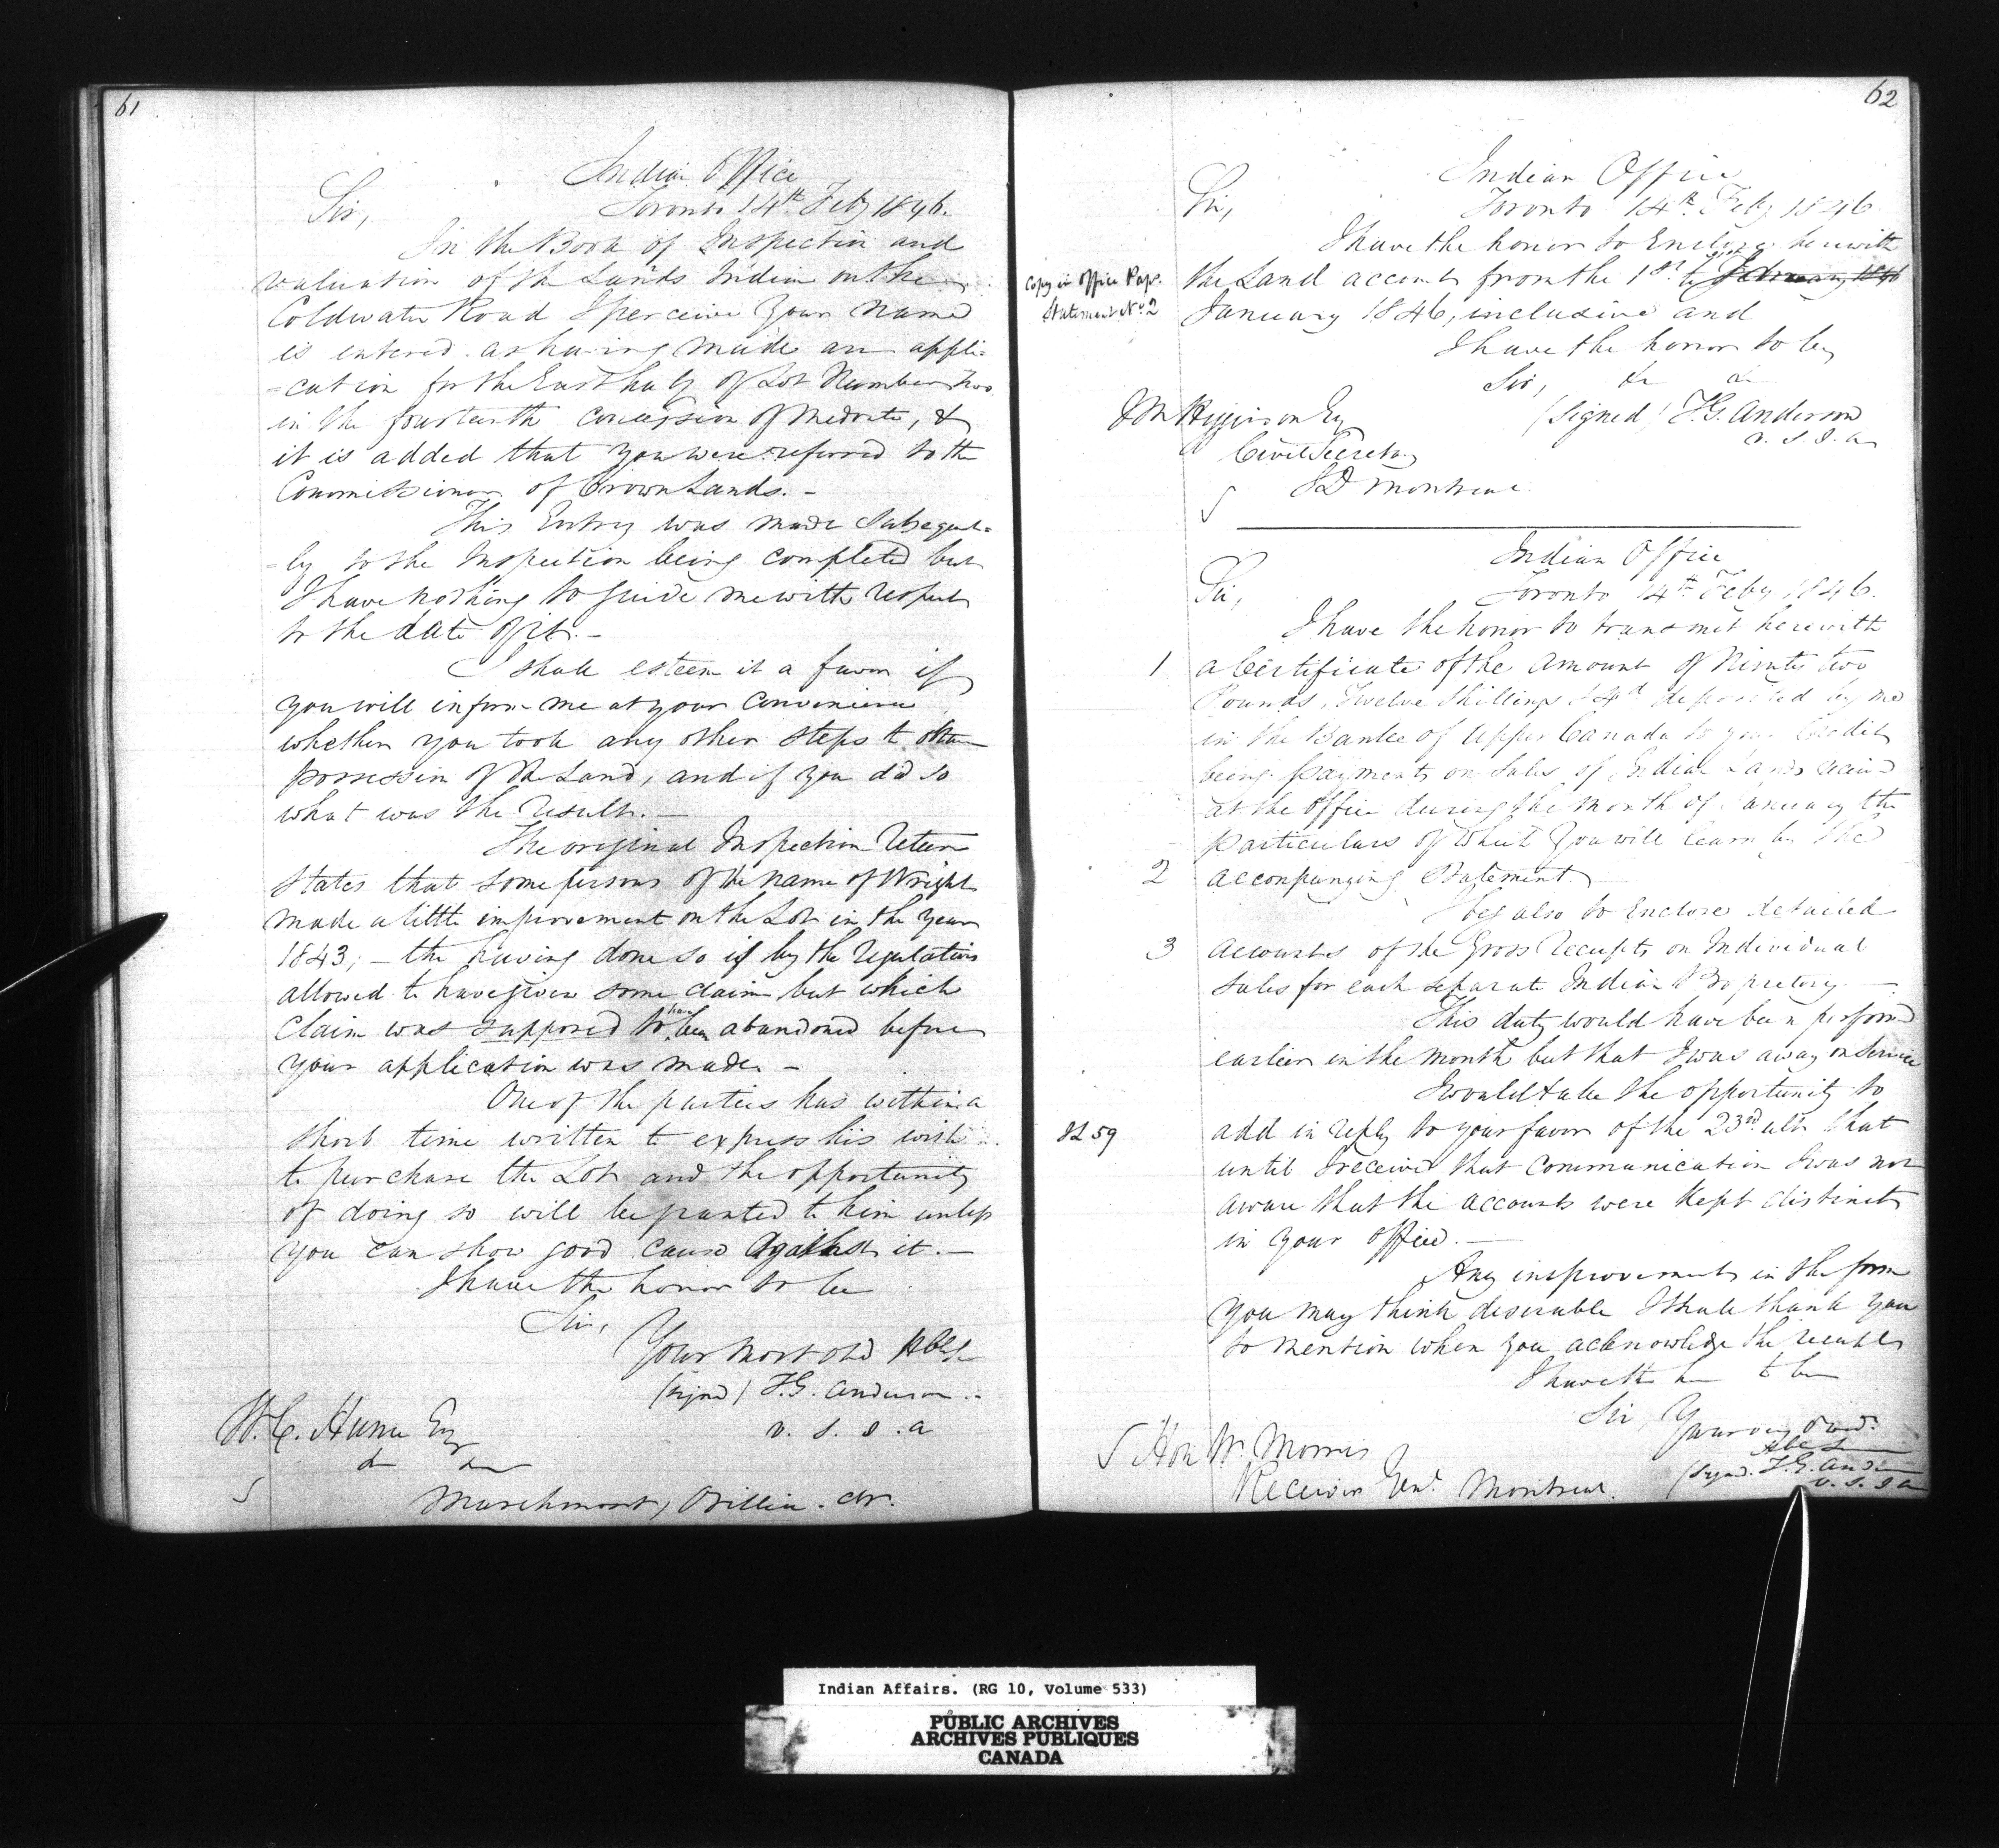 61
Indian Office
Toronto 14th Feby 1846.
Sir,
In the Book of Inspection and
valuation of the Lands Indian on the
Coldwater Road I perceive your name
is entered as having made an appli=
=cation for the East half of Lot Number two
in the fourteenth concession of Medonte, &
it is added that you were referred to the
Commissioner of Crown Lands. -
This Entry was made Subsequent=
=ly to the Inspection being completed but
I have nothing to guide me with respect
to the date of it. -
I shall esteem it a favor if
you will inform me at your convenience
whether you took any other steps to obtain
possession of the Land, and if you did so
what was the result. -
The original Inspection return
states that some persons of the name of Wright
made a little improvement on the Lot in the year
1843; - the having done so is by the regulations
allowed to have given some claim but which
claim was supposed to have been abandoned before
your application was made -
One of the parties has within a
short time written to express his wish
to purchase the Lot and the opportunity
of doing so will be granted to him unless
you can show good cause against it. -
I have the honor to be
Sir,
Your most obd Hble St
(signd) T.G. Anderson
V. S. I. A
W. C. Hume Esq
&c &c
Marchmont, Orillia. &c.
62
Indian Office
Toronto 14th Feby 1846.
Sir,
I have the honor to Enclose herewith
Copy in Office Pap.
Statement No 2
the Land accounts from the 1st to 31st February 1846
January 1846, inclusive and
I have the honor to be,
Sir, &c &c
(signed) T.G. Anderson
V. S. I. A
J M Higginson Esq
Civil Secretary
I D Montreal
Indian Office
Toronto 14th Feby 1846.
Sir,
I have the honor to transmit herewith
1 a Certificate of the amount of Ninety two
Pounds, Twelve Shillings & 4d deposited by me
in the Bank of Upper Canada to your Credit
being payments on Sales of Indian Lands received
at the office during the month of January the
particulars of which you will learn by the
2 accompanying Statement
I beg also to Enclose detailed
3 accounts of the Gross receipts on Individual
sales for each separate Indian Proprietory -
This duty would have been performed
earlier in the month but that I was away on Service
I would take the opportunity to
SL 59
add in reply to your favor of the 23rd ulto that
until I received that communication I was not
aware that the accounts were kept distinct
in your office. -
Any improvements in the form
you may think desirable I shall thank you
to mention when you acknowledge the receipt
I have the hr to be
Sir, Your very Obed.
Hble St
(Signd. T.G. Anderson
V. S. I A
Hon W. Morris
Receiver Genl. Montreal.
Indian Affairs. (RG 10, Volume 533)
PUBLIC ARCHIVES
ARCHIVES PUBLIQUES
CANADA